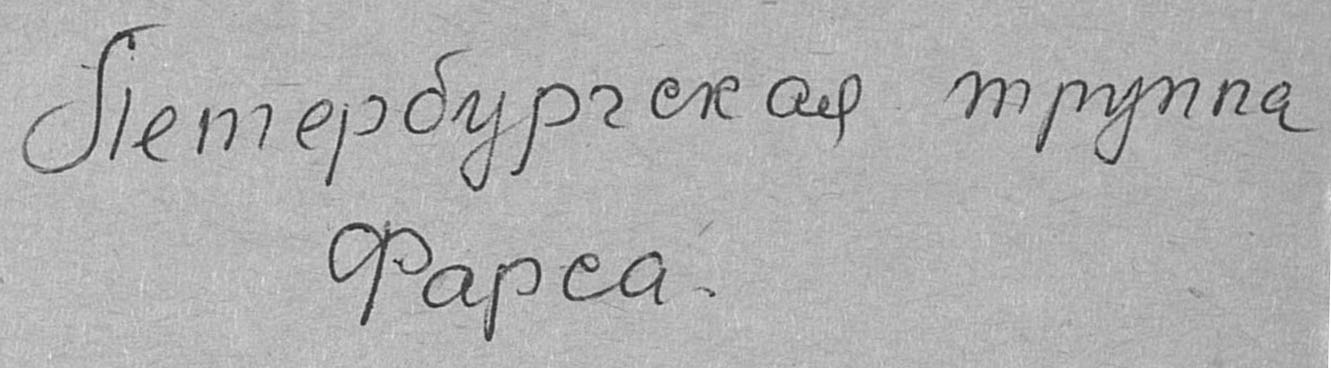 Петербургская труппа
Фарса.